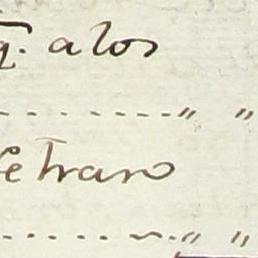 q. a los
.................. " "
se traxo
........ " "